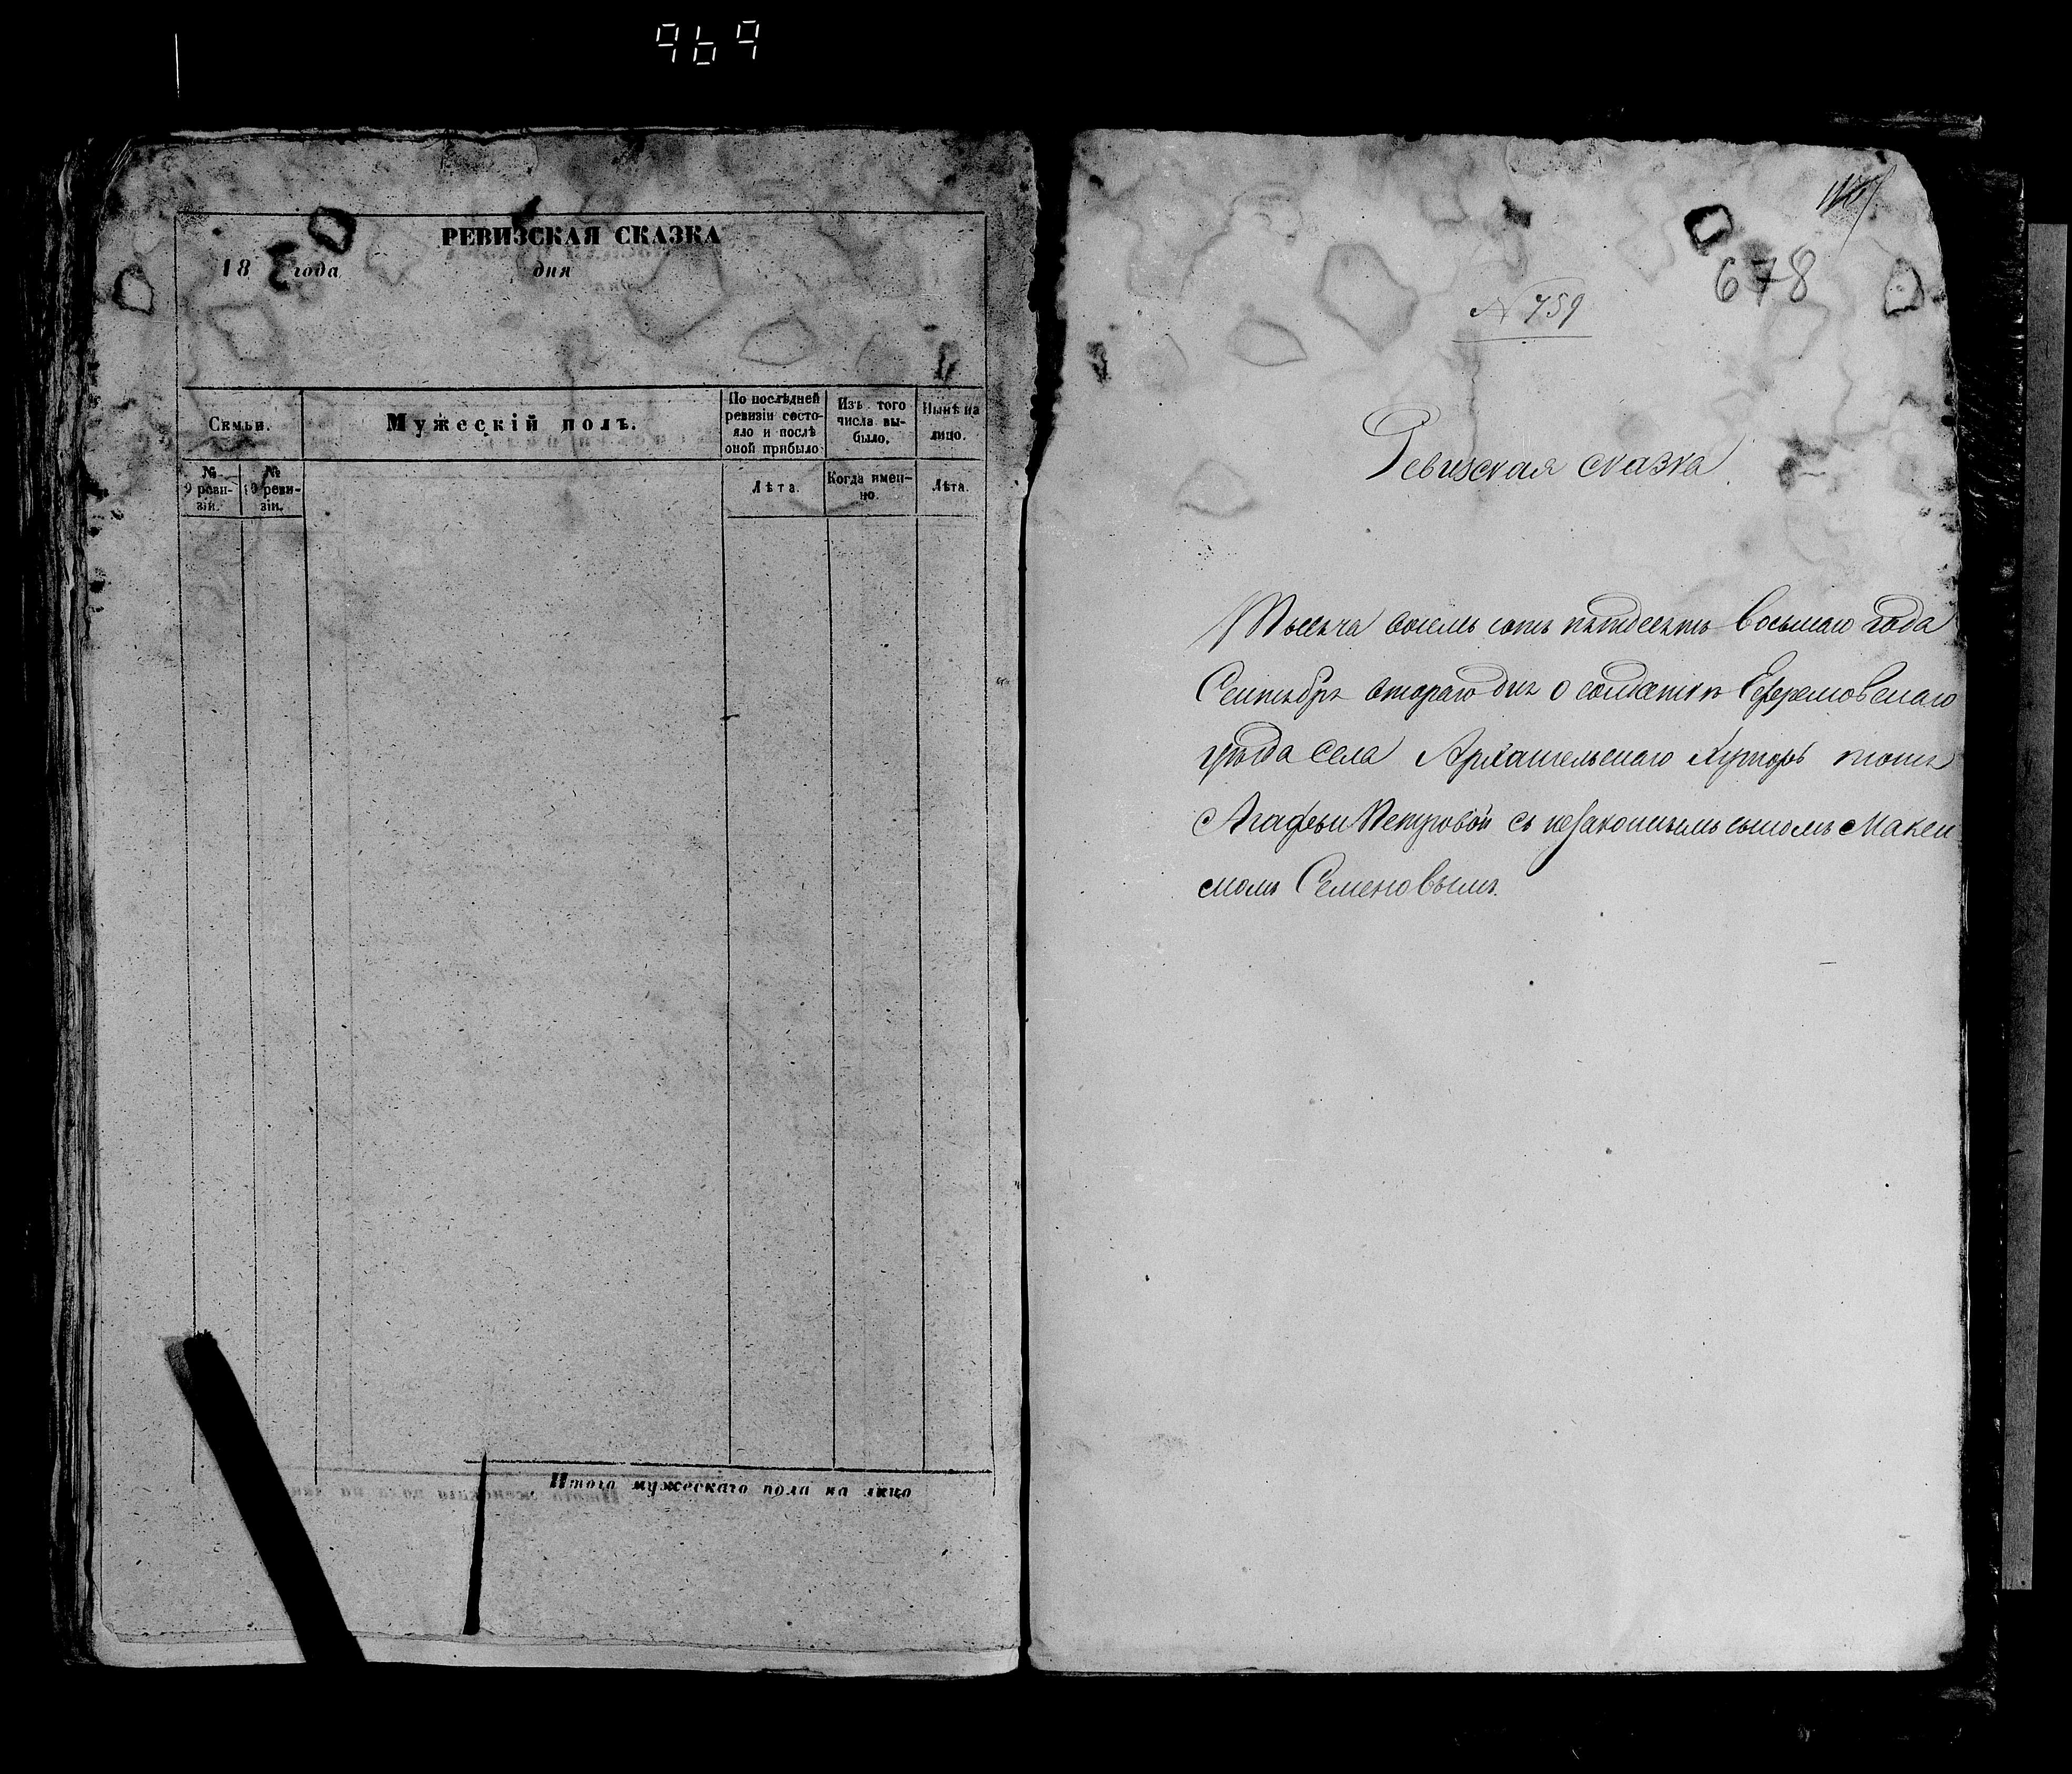 969
РЕВИЗСКАЯ СКАЗКА
18 года дня
Семьи.
Мужескій полъ.
По послѣдней ревизіи состояло и послѣ оной прибыло
Изъ того числа выбыло.
Нынѣ на лицо.
№ 9 ревизіи.
№ 10 ревизіи.
Лѣта.
Когда именно.
Лѣта.
Итого мужескаго пола на лицо
678
N 759
Ревизская сказка
Тысяча восемь сотъ пятдесятъ восьмаго года
Сентября втораго дня о солдаткѣ Ефремовскаго
уѣзда села Архангельскаго Хуторъ тожъ
Агафьи Петровой съ незаконнымъ сыномъ Макси
момъ Семеновымъ.